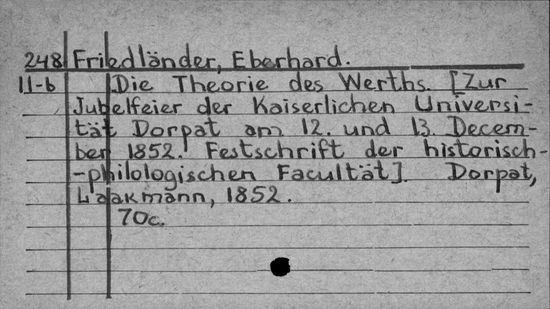 248 Friedländer, Eberhard.
II-6 Die Theorie des Werths. [Zur
Jubelfeier der Kaiserlichen Universi-
tät Dorpat am 12. und 13. Decem-
ber 1852. Festschrift der historisch-
-philologischen Facultät]. Dorpat,
Laakmann, 1852.
70c.